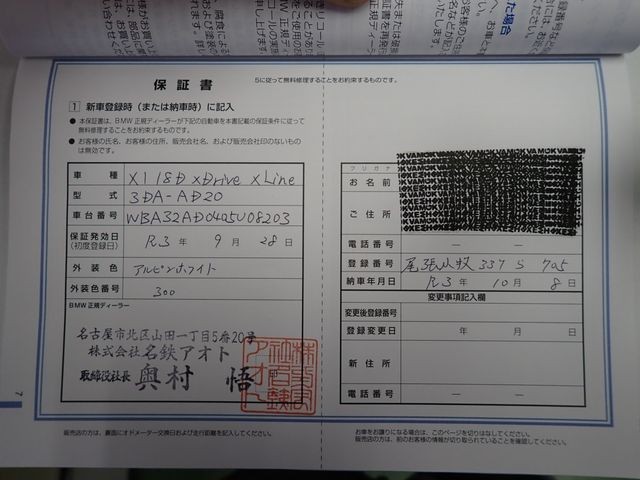 保証書
5に従って無料修理することをお約束するものです。
1 新車登録時（または納車時）に記入
● 本保証書は、BMW 正規ディーラーが下記の自動車を本書記載の保証条件に従って
無料修理することをお約束するものです。
● お客様の氏名、お客様の住所、販売会社名、および販売会社印のないもの
は無効です。
車種 X1 18D xDrive xLine
型式 3DA-AD20
車台番号 WBA32AD0405U08203
保証発効日 R3年 9月 28日
(初度登録日)
外装色 アルピンホワイト
外装色番号 300
BMW 正規ディーラー
名古屋市北区山田一丁目5番20号
株式会社 名鉄アオト
取締役社長 奥村 悟
販売店の方は、裏面にオドメーター交換日および走行距離を記入してください。
7
フリガナ
お名前
ご住所
電話番号 — —
登録番号 尾張小牧 337 S 705
納車年月日 R3年 10月 8日
変更事項記入欄
変更後登録番号
登録変更日 年 月 日
新住所
電話番号 — —
お車をお譲りになる場合は、このページを切りはなしてください。
販売店の方は、前のお客様の情報が切り取られていることを確認してください。